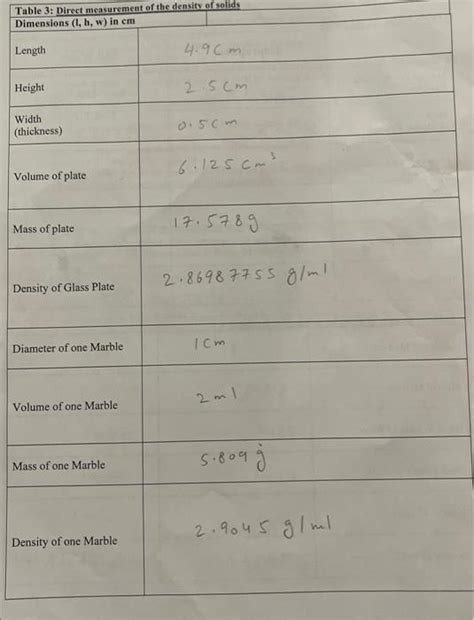 Table 3: Direct measurement of the density of solids
Dimensions (l, h, w) in cm
Length 4.9cm
Height 2.5cm
Width
(thickness) 0.5cm
Volume of plate 6.125cm³
Mass of plate 17.578g
Density of Glass Plate 2.86987755 g/ml
Diameter of one Marble 1cm
Volume of one Marble 2ml
Mass of one Marble 5.809g
Density of one Marble 2.9045 g/ml